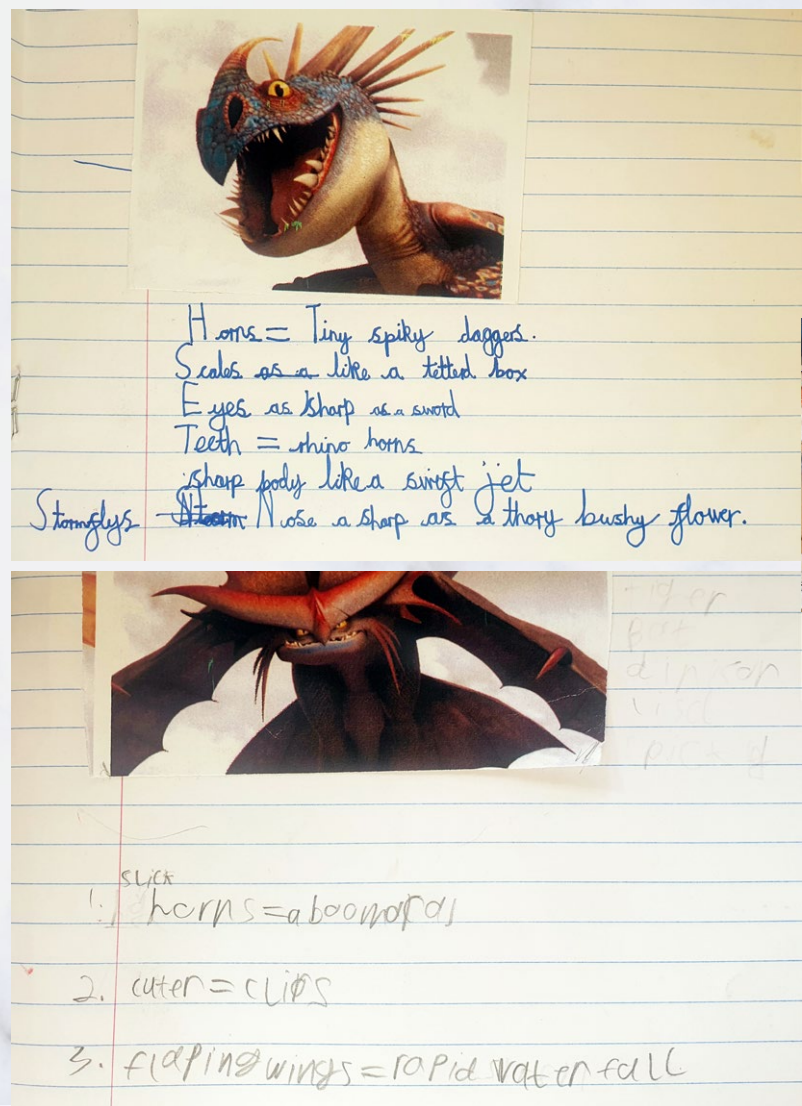 Horns = Tiny spiky daggers.
Scales as a like a tetted box
Eyes as sharp as a sword
Teeth = rhino horns
sharp pody like a swift jet
Stormflys Storm Nose a sharp as a thory bushy flower.
slick
1. horns = a boomaras
2. cuter = clips
3. flaping wings = rapid water fall